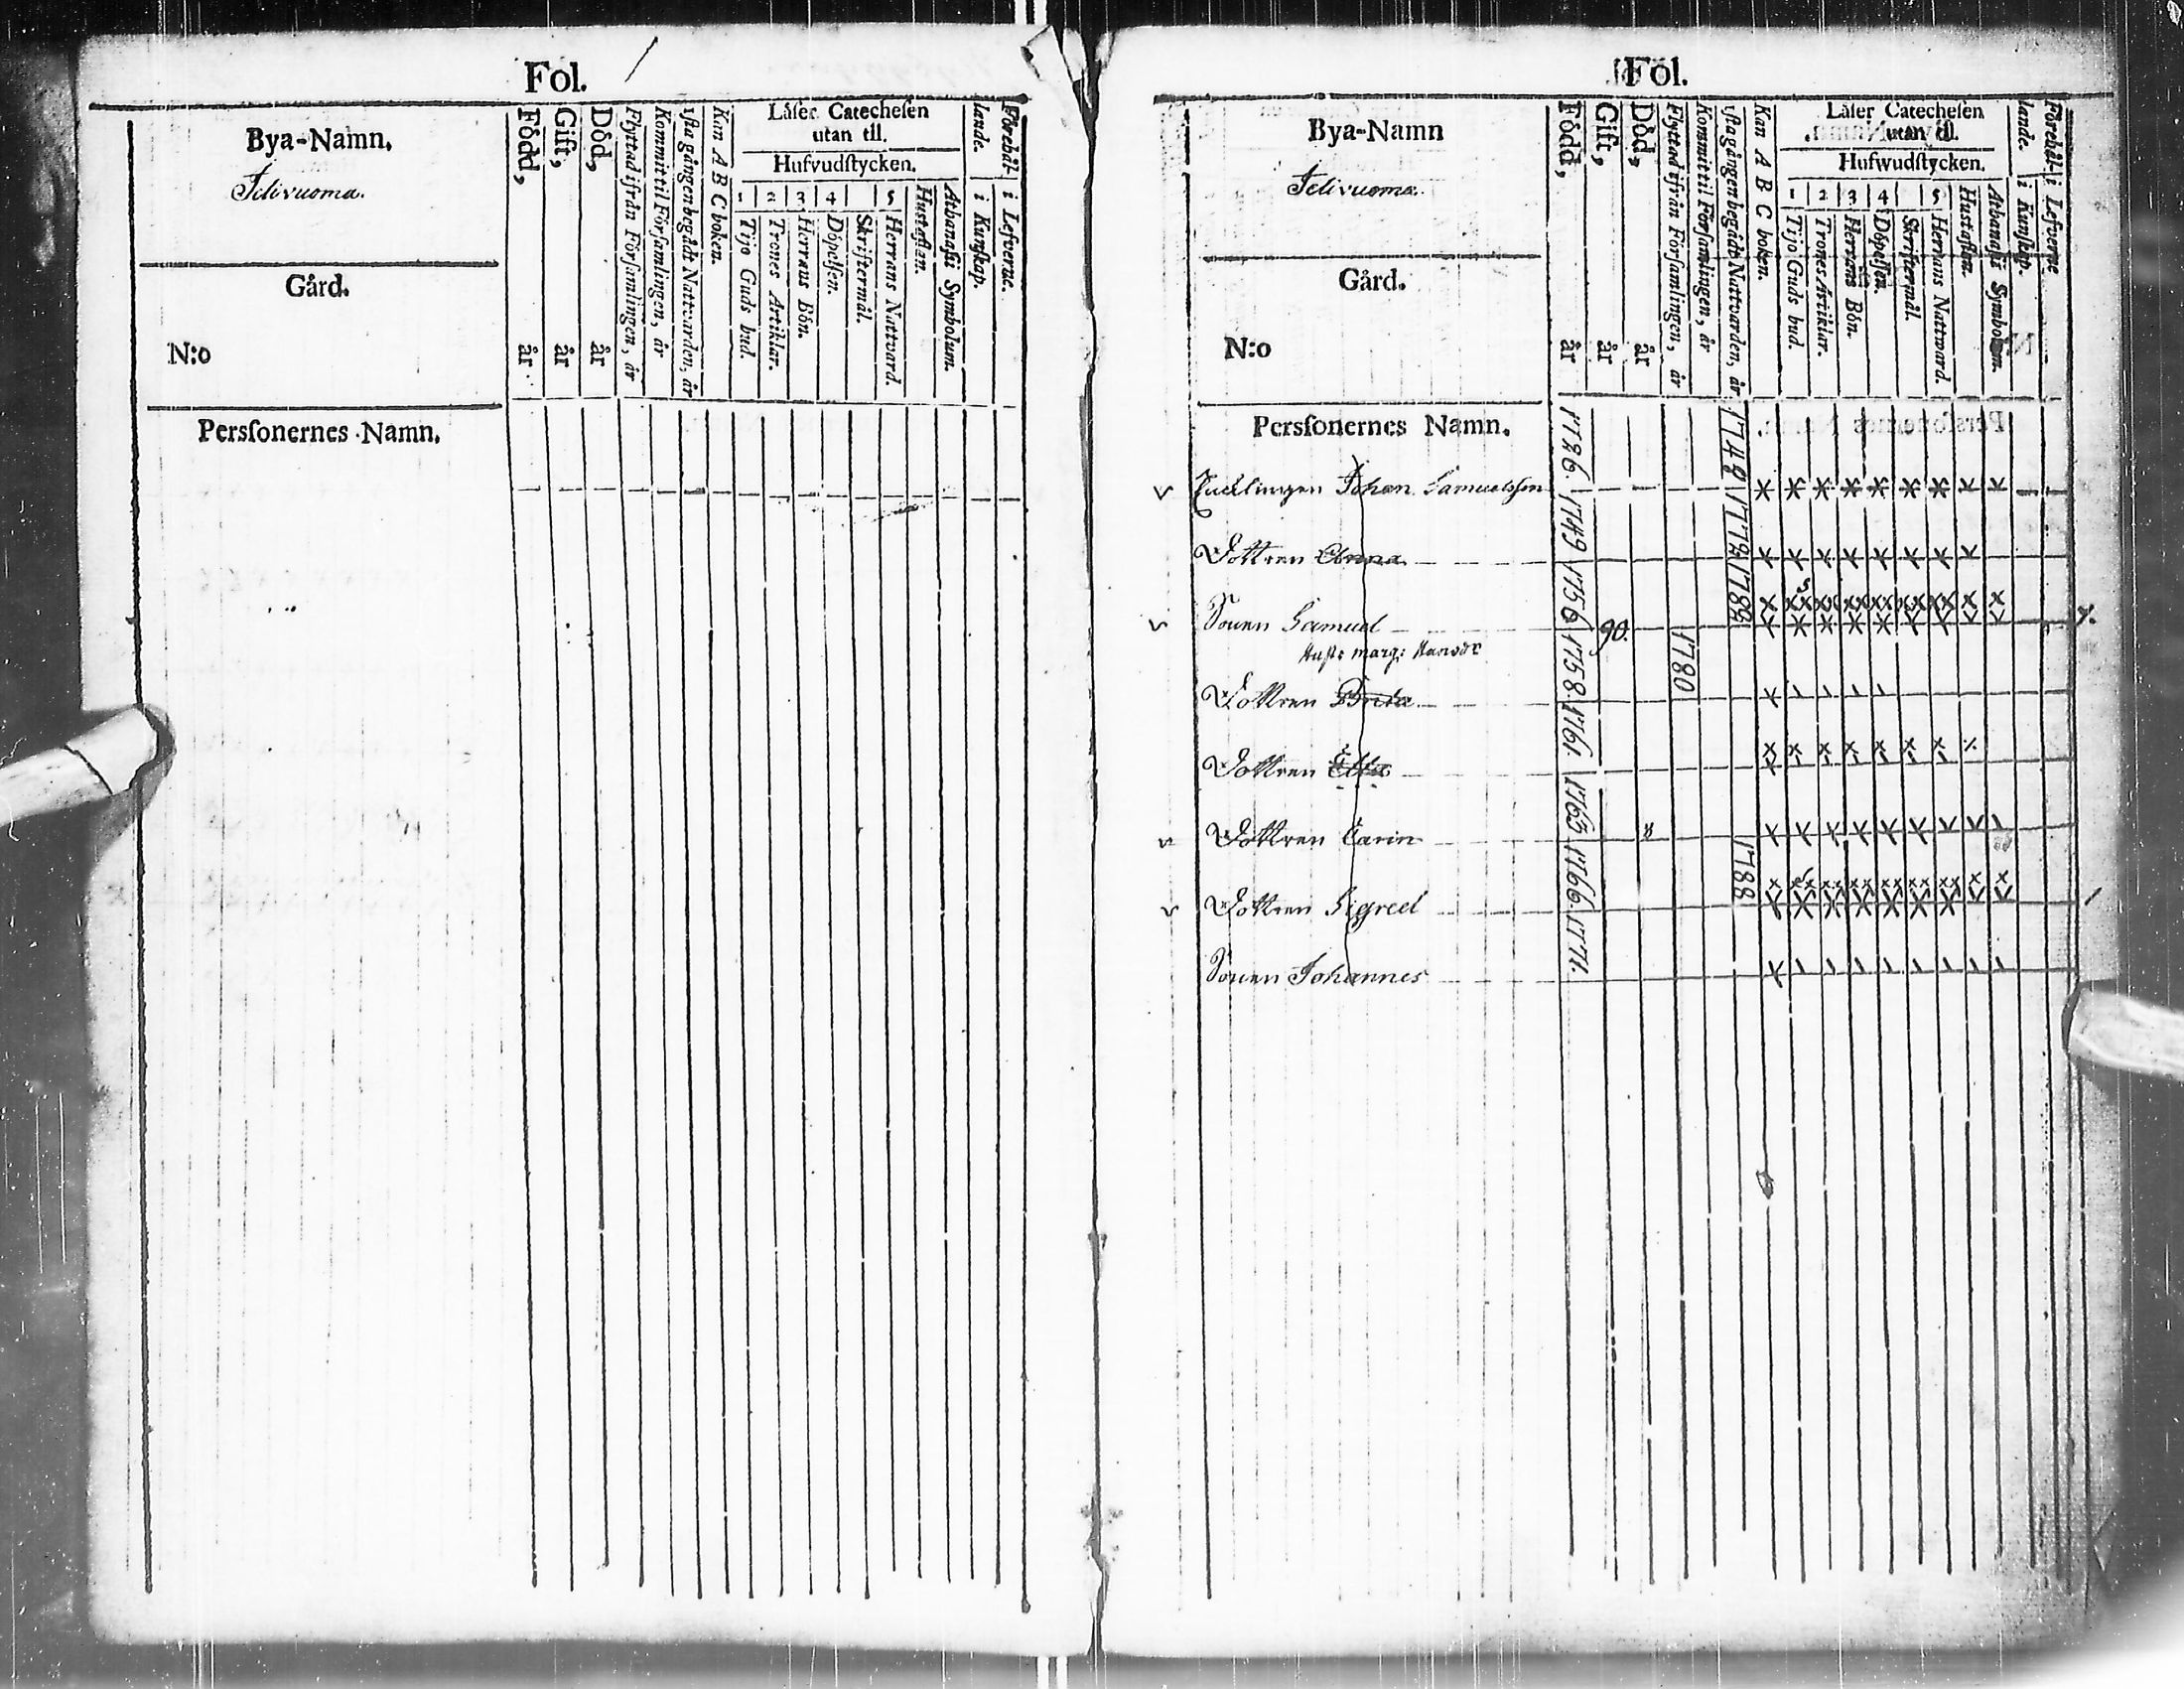 Fol. /
Bya-Namn.
Jelivuoma.
Gård.
N:o
Perſonernes Namn.
Född, år
Gift, år
Död, år
Flyttad ifrån Förſamlingen, år
Kommit til Förſamlingen, år
1ſta gången begådt Nattvarden, år
Kan A B C boken.
Låſer Catecheſen
utan til.
Hufvudſtycken.
1 2 3 4 5
Tijo Guds bud.
Trones Artiklar.
Herrans Bön.
Döpelſen.
Skriftermål.
Herrans Nattvard.
Huſtaflan.
Athanaſii Symbolum.
Förehål-
lande.
i Kunſkap.
i Lefverne.
Fol.
Bya-Namn
Jelivuoma.
Gård.
N:o
Perſonernes Namn.
Född, år
Gift, år
Död, år
Flyttad ifrån Förſamlingen, år
Kommit til Förſamlingen, år
1ſta gången begådt Nattvarden, år
Kan A B C boken.
Låſer Catecheſen
utan til.
Hufwudſtycken.
1 2 3 4 5
Tijo Guds bud.
Trones Artiklar.
Herrans Bön.
Döpelſen.
Skriftermål.
Herrans Nattward.
Huſtaflan.
Athanaſii Symbolum.
Förehål-
lande.
i Kunſkap.
i Lefverne
Johan Samuelsson 1726. 1742
Dottren Anna 1749 1772
Sonen Samuel 1756 90. 1788
Hust: marg: Hansdr
Dottren Brita 1758 1780
Dottren 1761.
Dottren Carin 1763
Dottren Sigred 1766 1788
Sonen Johannes 1771.